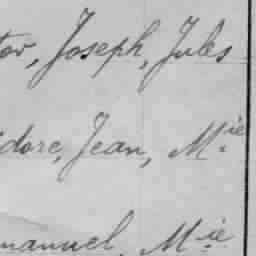 tor, Joseph, Jules
idore, Jean, Mie
manuel, Mie